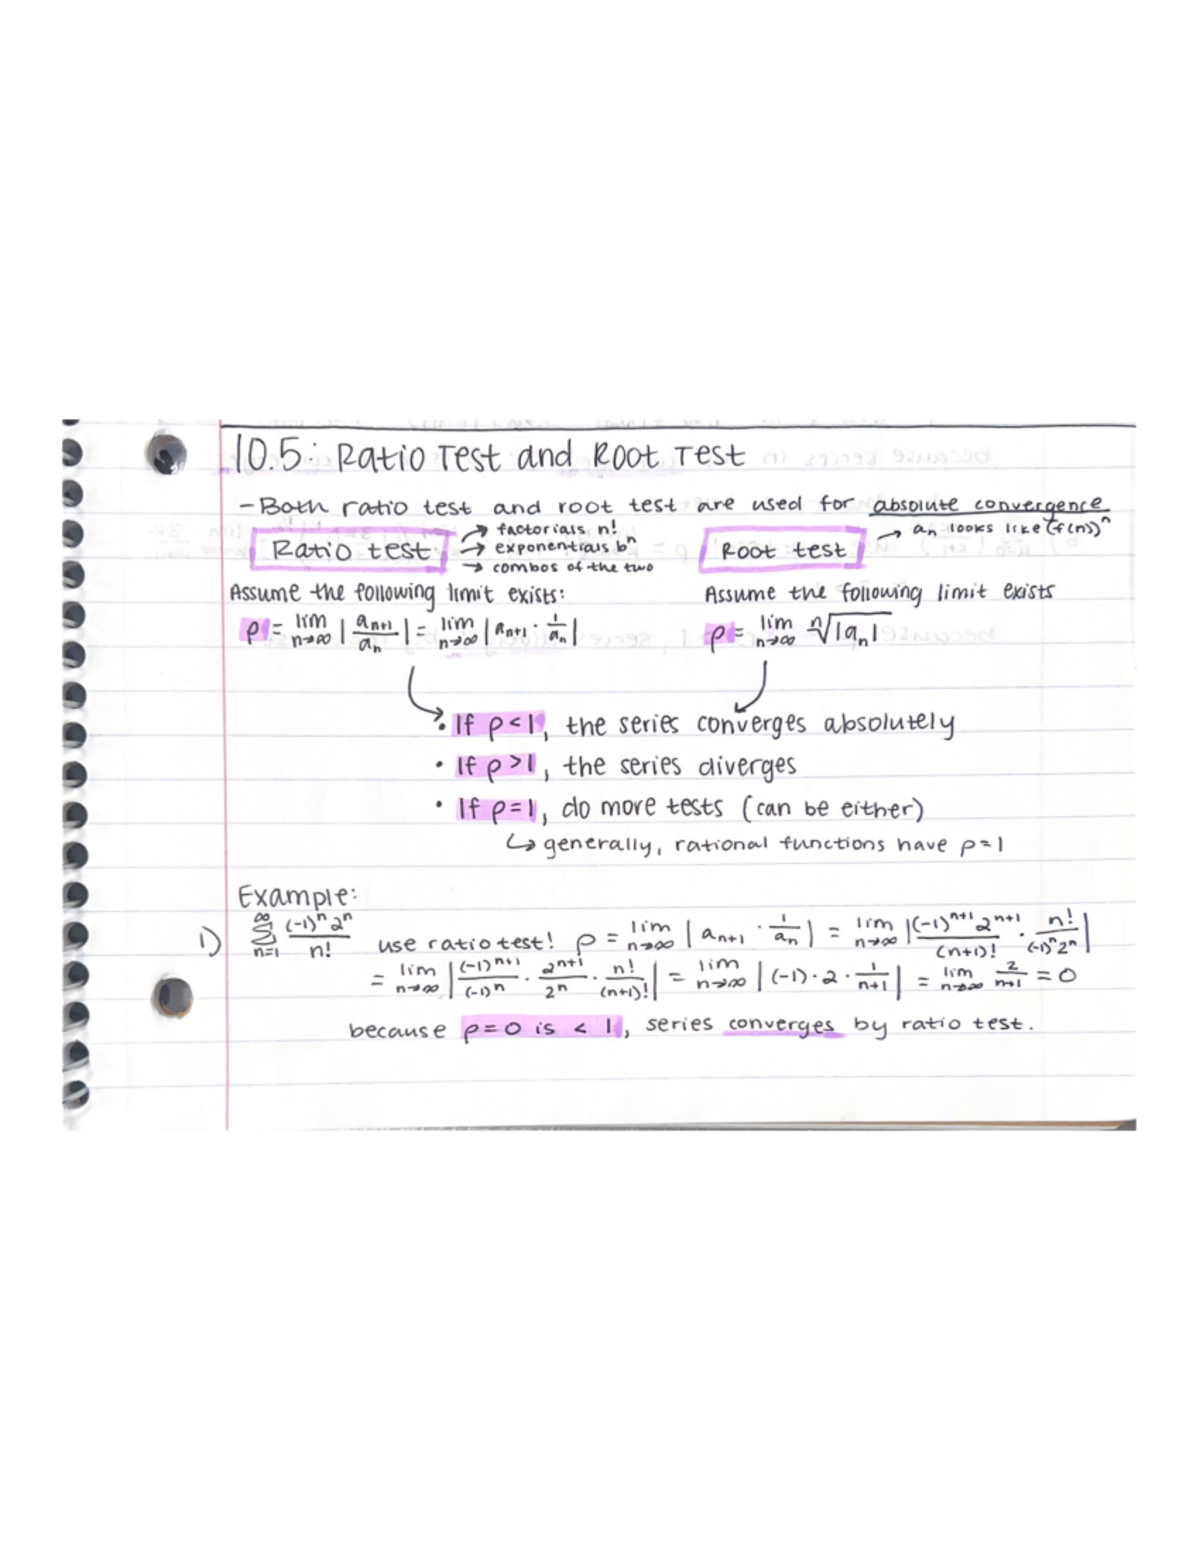 10.5: Ratio Test and Root Test
- Both ratio test and root test are used for absolute convergence
Ratio test → factorials n!
→ exponentials bⁿ
→ combos of the two
Root test → aₙ looks like (f(n))ⁿ
Assume the following limit exists:
ρ = lim n→∞ | aₙ₊₁ / aₙ | = lim n→∞ | aₙ₊₁ · 1/aₙ |
Assume the following limit exists
ρ = lim n→∞ ⁿ√|aₙ|
• If ρ < 1, the series converges absolutely
• If ρ > 1, the series diverges
• If ρ = 1, do more tests (can be either)
↳ generally, rational functions have ρ = 1
Example:
1) ∞ Σ n=1 (-1)ⁿ 2ⁿ / n! use ratio test! ρ = lim n→∞ | aₙ₊₁ · 1/aₙ | = lim n→∞ | (-1)ⁿ⁺¹ 2ⁿ⁺¹ / (n+1)! · n! / (-1)ⁿ 2ⁿ |
= lim n→∞ | (-1)ⁿ⁺¹ / (-1)ⁿ · 2ⁿ⁺¹ / 2ⁿ · n! / (n+1)! | = lim n→∞ | (-1) · 2 · 1/n+1 | = lim n→∞ 2/n+1 = 0
because ρ = 0 is < 1, series converges by ratio test.